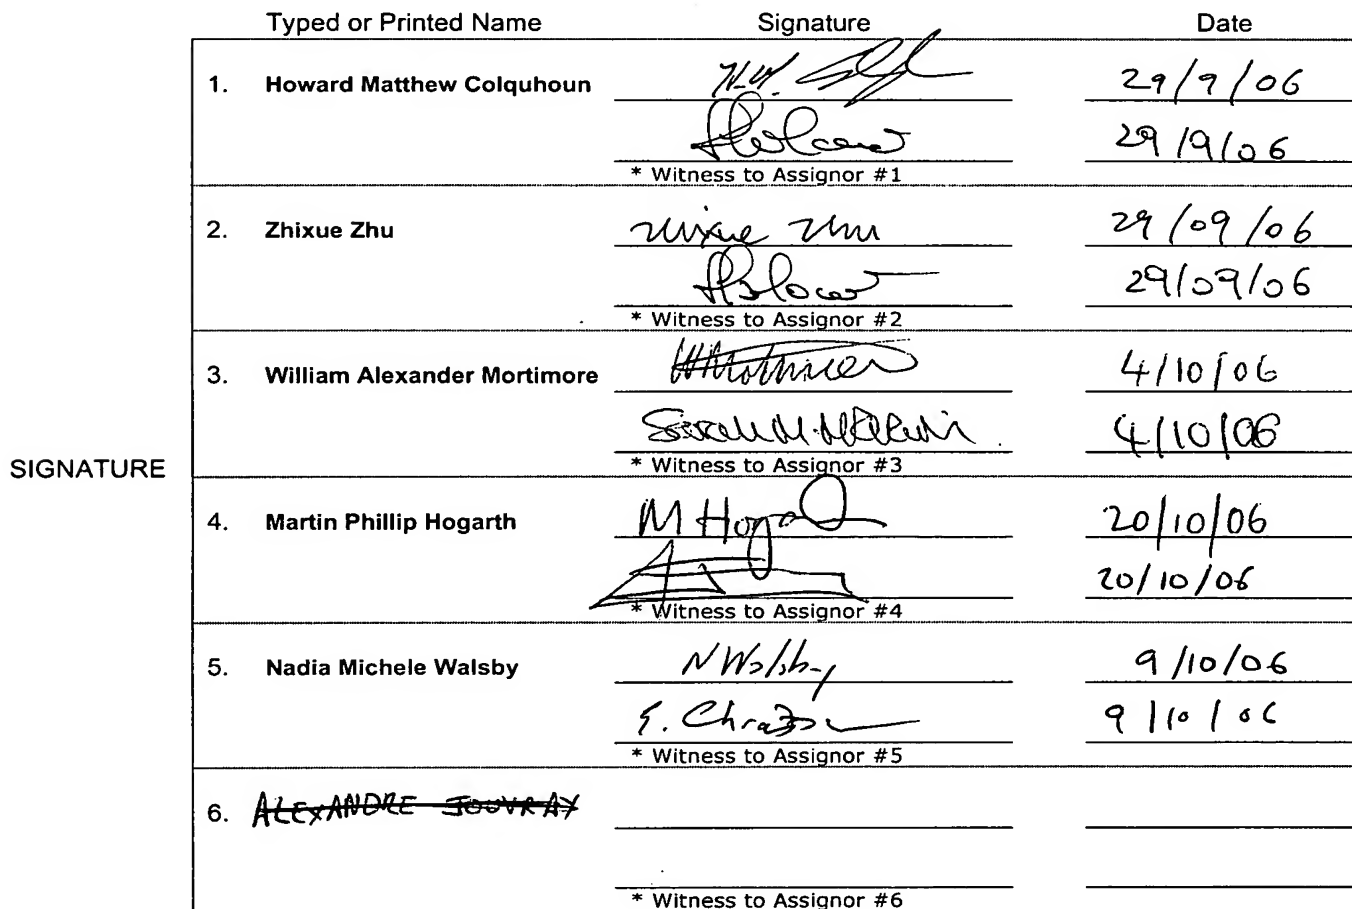 Typed or Printed Name Signature Date
1. Howard Matthew Colquhoun H.M. 29/9/06
29/9/06
* Witness to Assignor #1
2. Zhixue Zhu Zhixue Zhu 29/09/06
29/09/06
* Witness to Assignor #2
3. William Alexander Mortimore WMortimore 4/10/06
Sarah M. 4/10/06
* Witness to Assignor #3
SIGNATURE
4. Martin Phillip Hogarth M Hogarth 20/10/06
20/10/06
* Witness to Assignor #4
5. Nadia Michele Walsby N Walsby 9/10/06
9/10/06
* Witness to Assignor #5
6. ALEXANDRE JOUVRAY
* Witness to Assignor #6